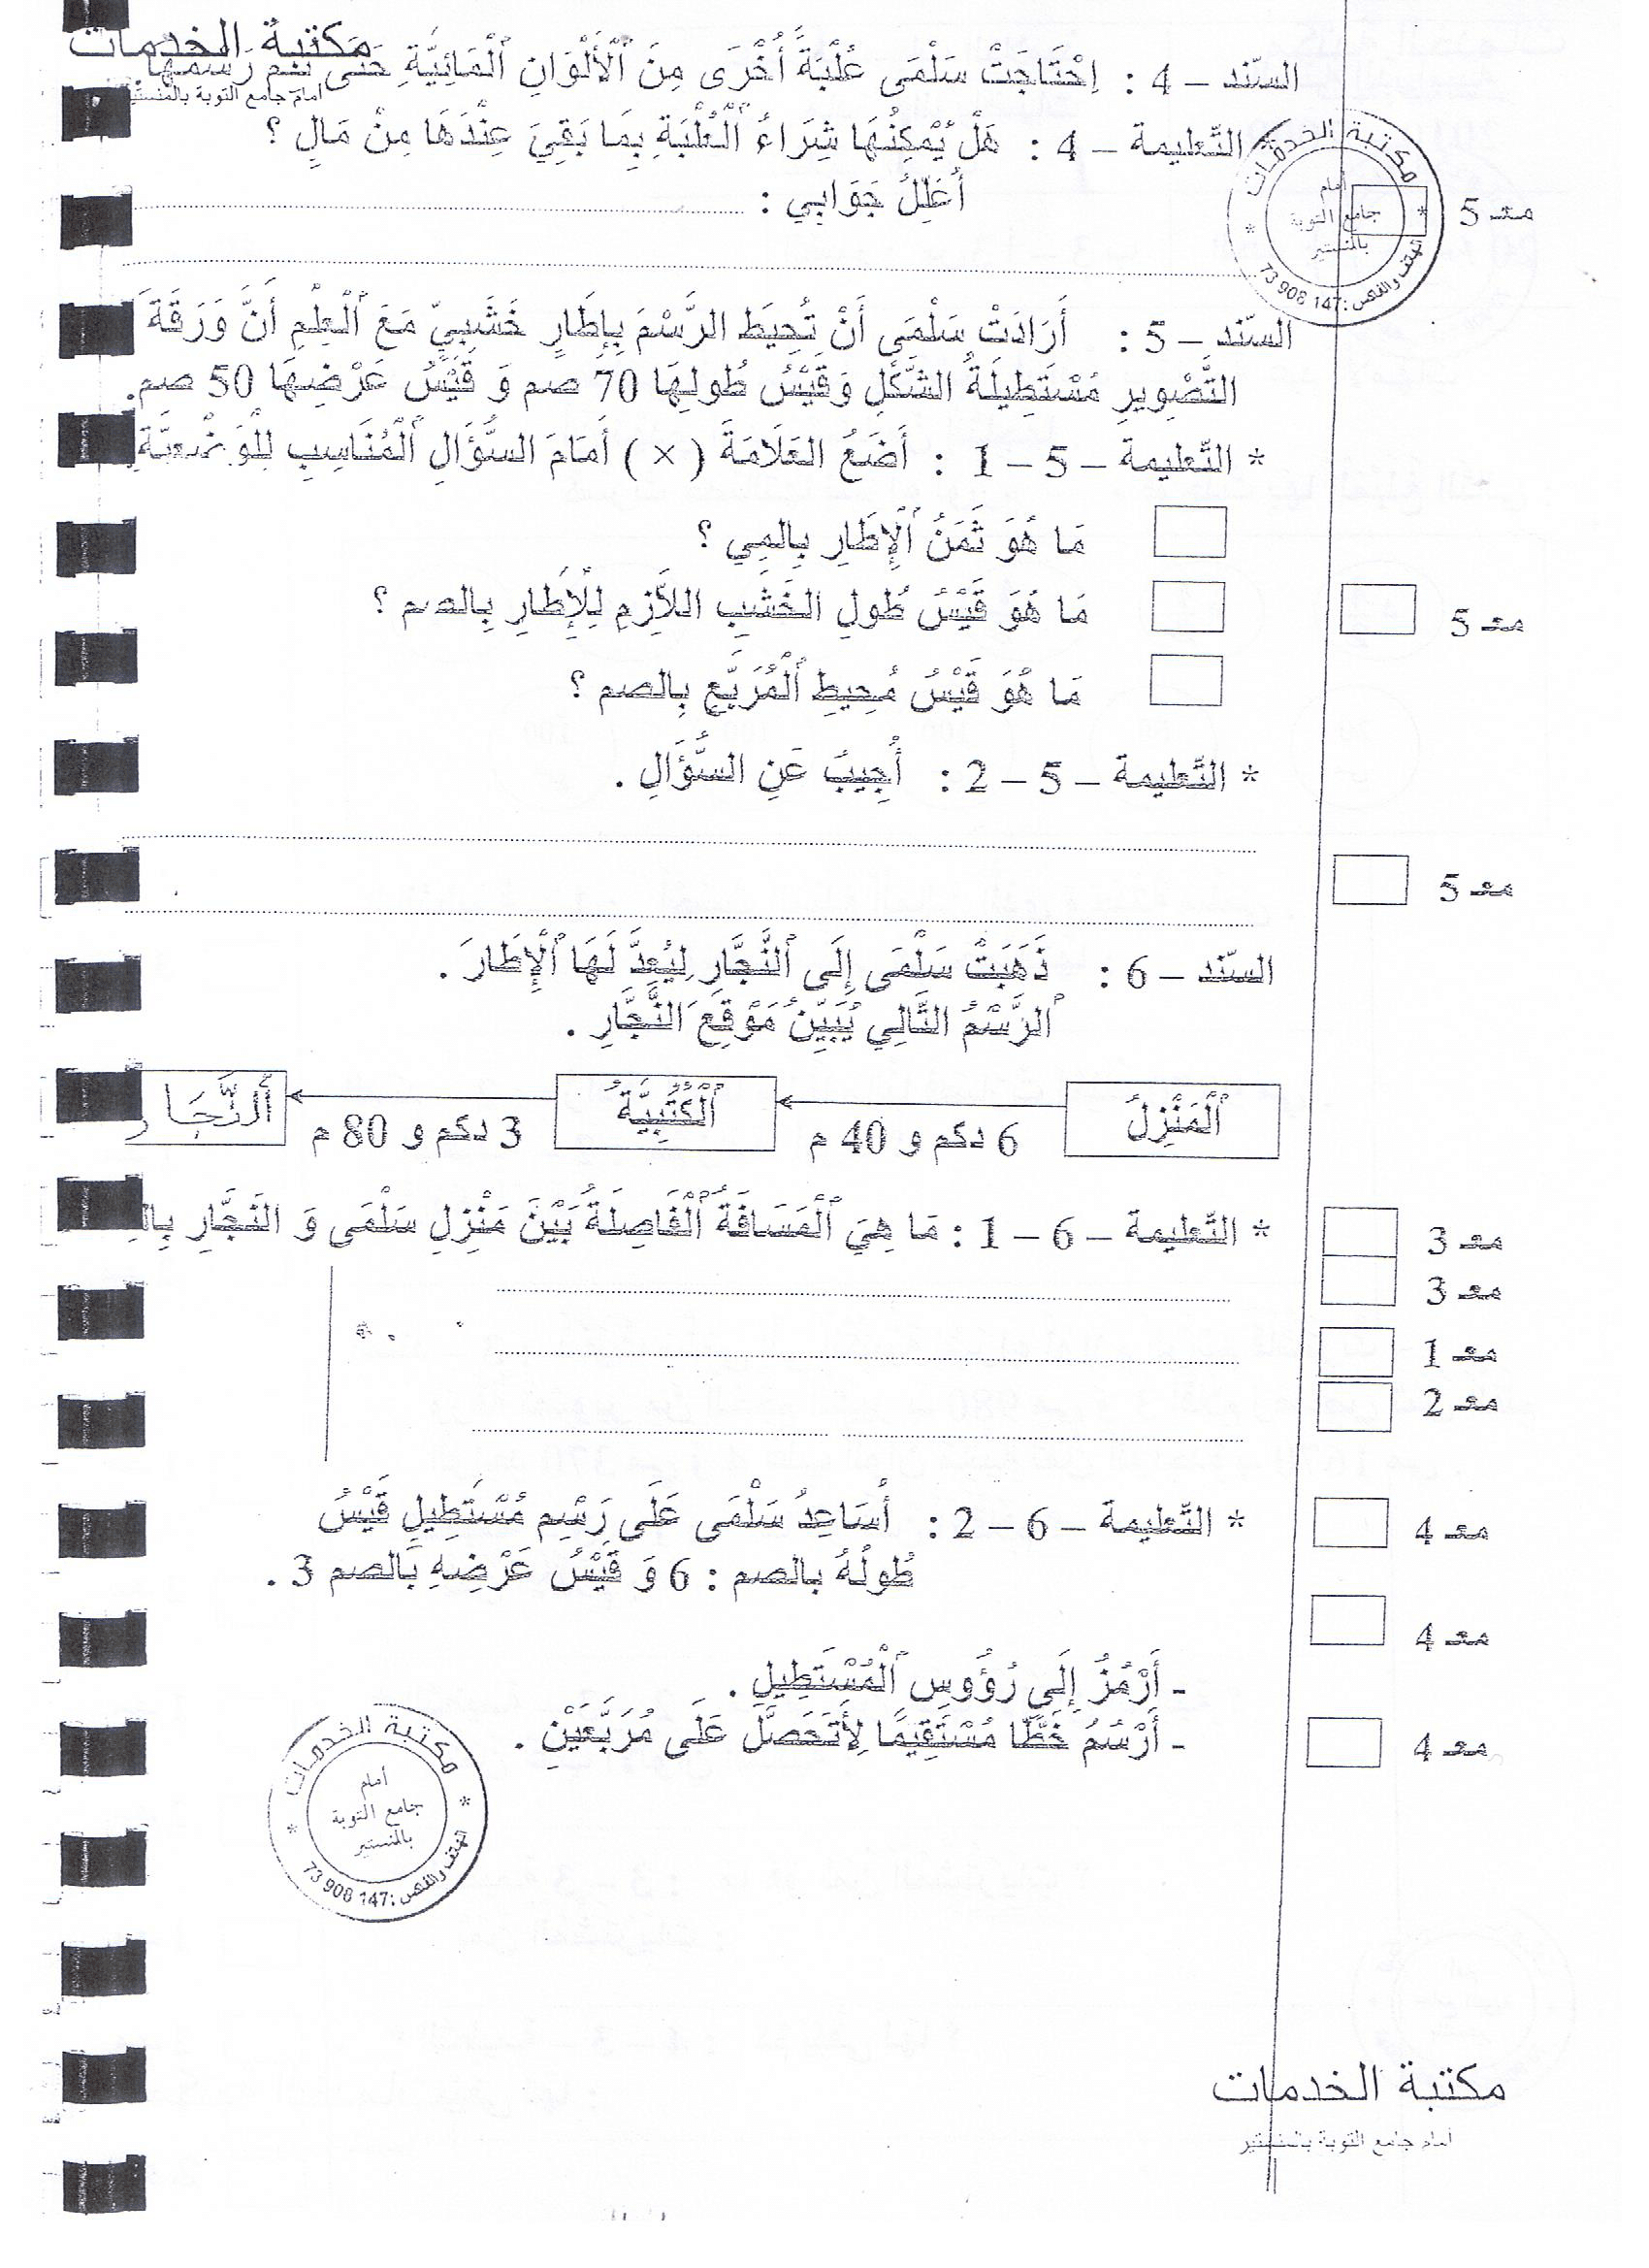 مكتبة الخدمات
السّند – 4 : اِحْتَاجَتْ سَلْمَى عُلْبَةً أُخْرَى مِنَ ٱلْأَلْوَانِ ٱلْمَائِيَّةِ حَتَّى تُتِمَّ رَسْمَهَا.
أمام جامع التوبة بالمنستير
* التّعليمة – 4 : هَلْ يُمْكِنُهَا شِرَاءُ ٱلْعُلْبَةِ بِمَا بَقِيَ عِنْدَهَا مِنْ مَالٍ ؟
أُعَلِّلُ جَوَابِي :
معـ 5
مكتبة الخدمات
أمام
جامع التوبة
بالمنستير
الهاتف والفاكس: 73 908 147
السّند – 5 : أَرَادَتْ سَلْمَى أَنْ تُحِيطَ الرَّسْمَ بِإِطَارٍ خَشَبِيٍّ مَعَ ٱلْعِلْمِ أَنَّ وَرَقَةَ
التَّصْوِيرِ مُسْتَطِيلَةُ الشَّكْلِ وَقَيْسُ طُولِهَا 70 صم وَ قَيْسُ عَرْضِهَا 50 صم.
* التّعليمة – 5 – 1 : أَضَعُ العَلَامَةَ ( × ) أَمَامَ السُّؤَالِ ٱلْمُنَاسِبِ لِلْوَضْعِيَّةِ
مَا هُوَ ثَمَنُ ٱلْإِطَارِ بِالمِي ؟
مَا هُوَ قَيْسُ طُولِ الخَشَبِ اللاَّزِمِ لِلْإِطَارِ بِالصم ؟
معـ 5
مَا هُوَ قَيْسُ مُحِيطِ ٱلْمُرَبَّعِ بِالصم ؟
* التّعليمة – 5 – 2 : أُجِيبُ عَنِ السُّؤَالِ .
معـ 5
السّند – 6 : ذَهَبَتْ سَلْمَى إِلَى ٱلنَّجَّارِ لِيُعِدَّ لَهَا ٱلْإِطَارَ .
ٱلرَّسْمُ التَّالِي يُبَيِّنُ مَوْقِعَ النَّجَّارِ .
ٱلْمَنْزِلُ 6 دكم و 40 م ٱلْكُتُبِيَّةُ 3 دكم و 80 م ٱلنَّجَّارُ
* التّعليمة – 6 – 1 : مَا هِيَ ٱلْمَسَافَةُ ٱلْفَاصِلَةُ بَيْنَ مَنْزِلِ سَلْمَى وَ النَجَّارِ
معـ 3
معـ 3
معـ 1
معـ 2
* التّعليمة – 6 – 2 : أُسَاعِدُ سَلْمَى عَلَى رَسْمِ مُسْتَطِيلٍ قَيْسُ
معـ 4
طُولُهُ بالصم : 6 وَ قَيْسُ عَرْضِهِ بَالصم 3 .
معـ 4
- أَرْمُزُ إِلَى رُؤُوسِ ٱلْمُسْتَطِيلِ .
- أَرْسُمُ خَطًّا مُسْتَقِيمًا لِأَتَحَصَّلَ عَلَى مُرَبَّعَيْنِ .
معـ 4
مكتبة الخدمات
أمام
جامع التوبة
بالمنستير
الهاتف والفاكس: 73 908 147
مكتبة الخدمات
أمام جامع التوبة بالمنستير